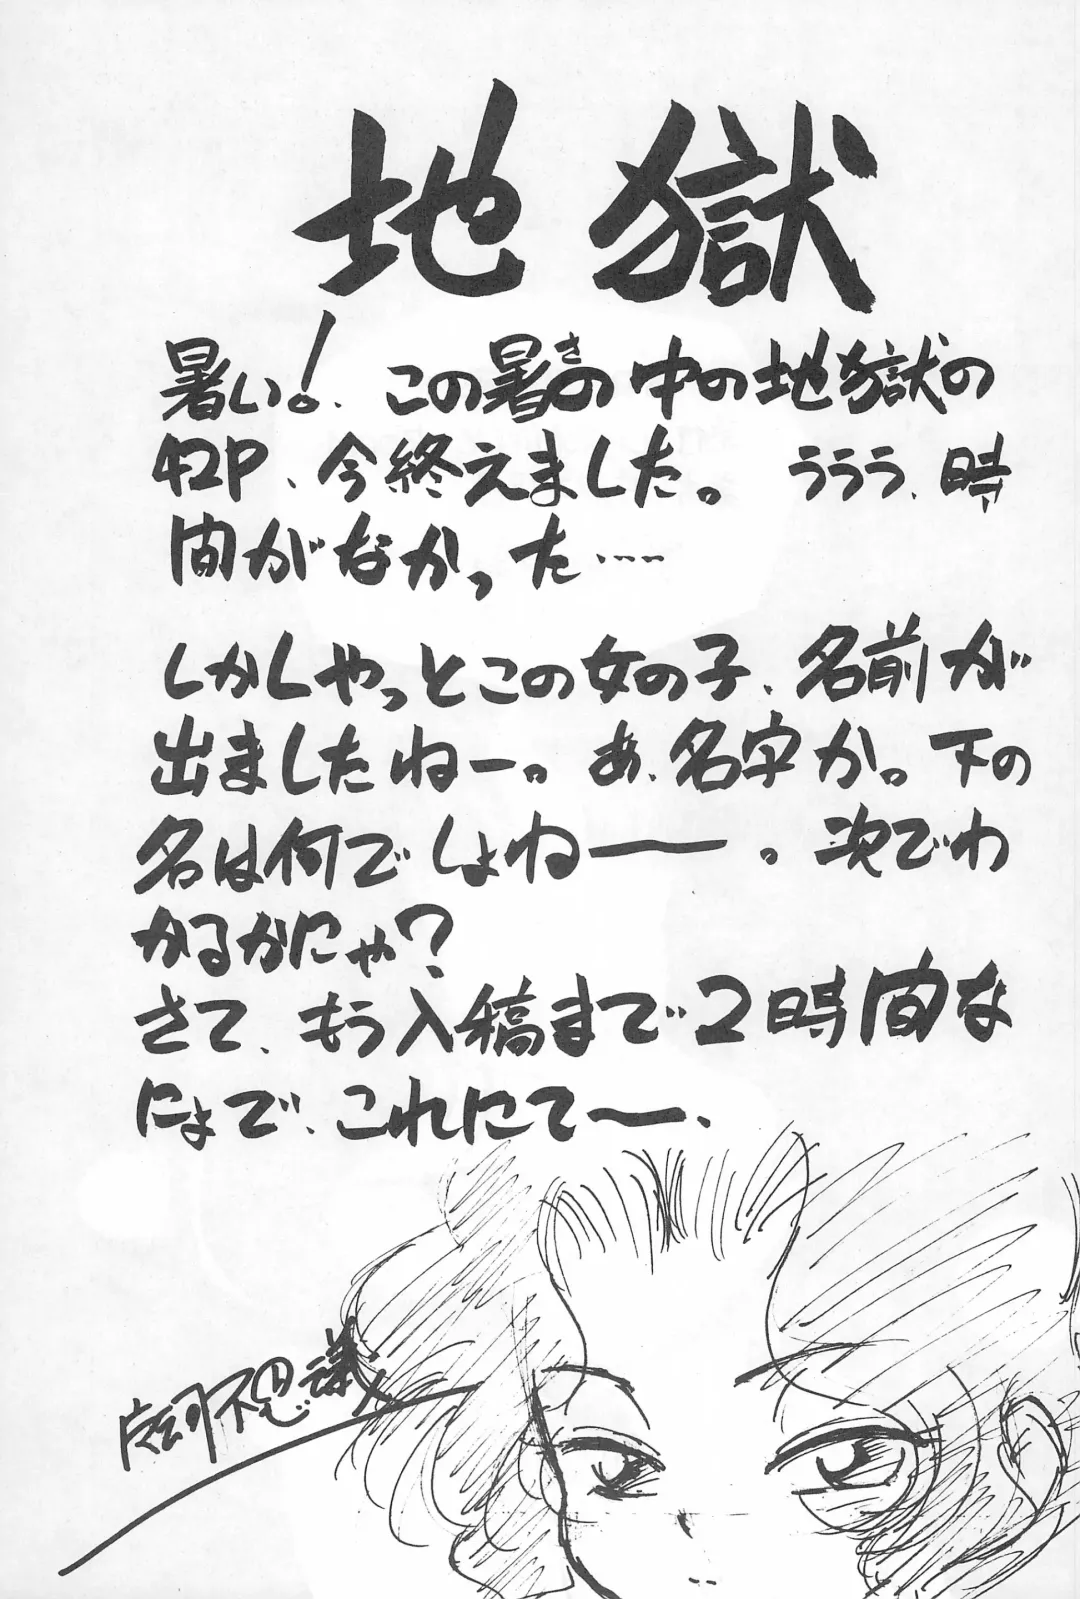 地獄
暑い！、この暑さの中の地獄の
42P、今終えました。 ううう、時
間がなかった……
しかしやっとこの女の子、名前が
出ましたねー。あ、名字か。下の
名は何でしょねーー。次でわ
かるかにゃ？
さて、もう入稿まで2時間な
にょで、これにてー、
不思議